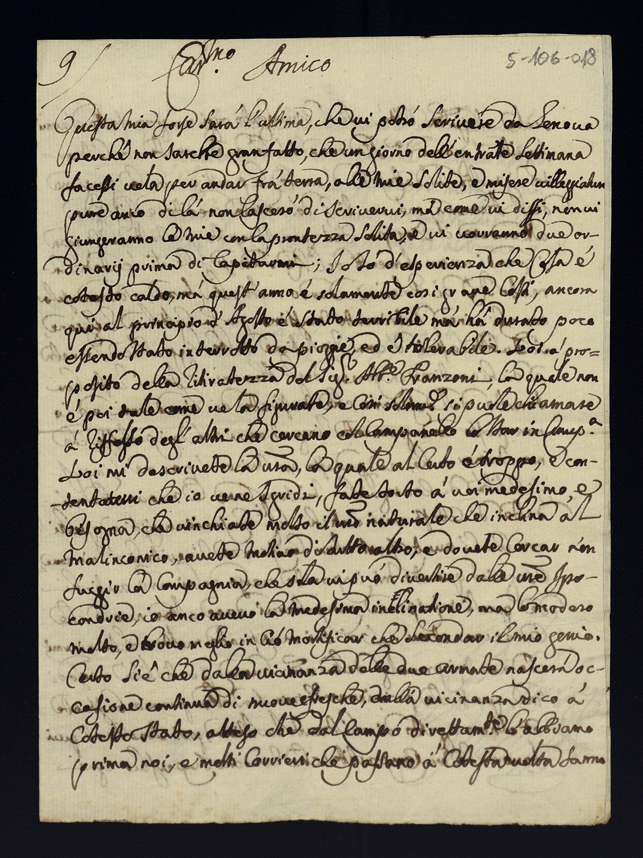 9/ Car.mo Amico 5-106-018
Questa mia forse sarà l'ultima, che vi potrò scrivere da Genova
perché non sarebbe gran fatto, che un giorno dell'entrāte settimana
facessi vela per andar frà terra, alle mie solite, e misere
pure anco di là non lascerò di scrivervi, mà come vi dissi, non vi
giungeranno le mie con la prontezza solita, e vi vorranno due or-
dinarij prima di ; Io sò d'esperienza che cosa é
cotesto caldo, mà quest'anno é solamente così grave costì, ancora
quì al principio d'Agosto é stato terribile mà hà durato poco
essendo stato interrotto da pioggie, ed é tolerabile. pro=
posito della ritiratezza del Sig.r Franzoni, la quale non
é poi tale come ve la figurate, e così si puole chiamare
à riflesso degl'altri che cercano col Campanello
Voi mi descrivete la vrā, la quale al certo é troppo, e con-
tentatevi che io ve ne sgridi, fate torto à voi medesimo, e
bisogna, che vinchiate molto il vrō naturale che inclina al
malinconico, avete motivo di tutto altro, e dovete cercar non
fuggir la compagnia, che sola vi può divertire dalle vrē Ipo-
condrie, io anco avevo la medesima inclinatione, ma la modero
molto, e trovo meglio in ciò mortificar che secondar il mio genio.
Certo si é che dalla vicinanza delle due armate nascerà oc-
casione continua di nuove fresche, dalla vicinanza dico à
cotesto stato, atteso che dal Campo direttam.te l'abbiamo
prima noi, e molti Corrieri che passano à cotesta volta fanno